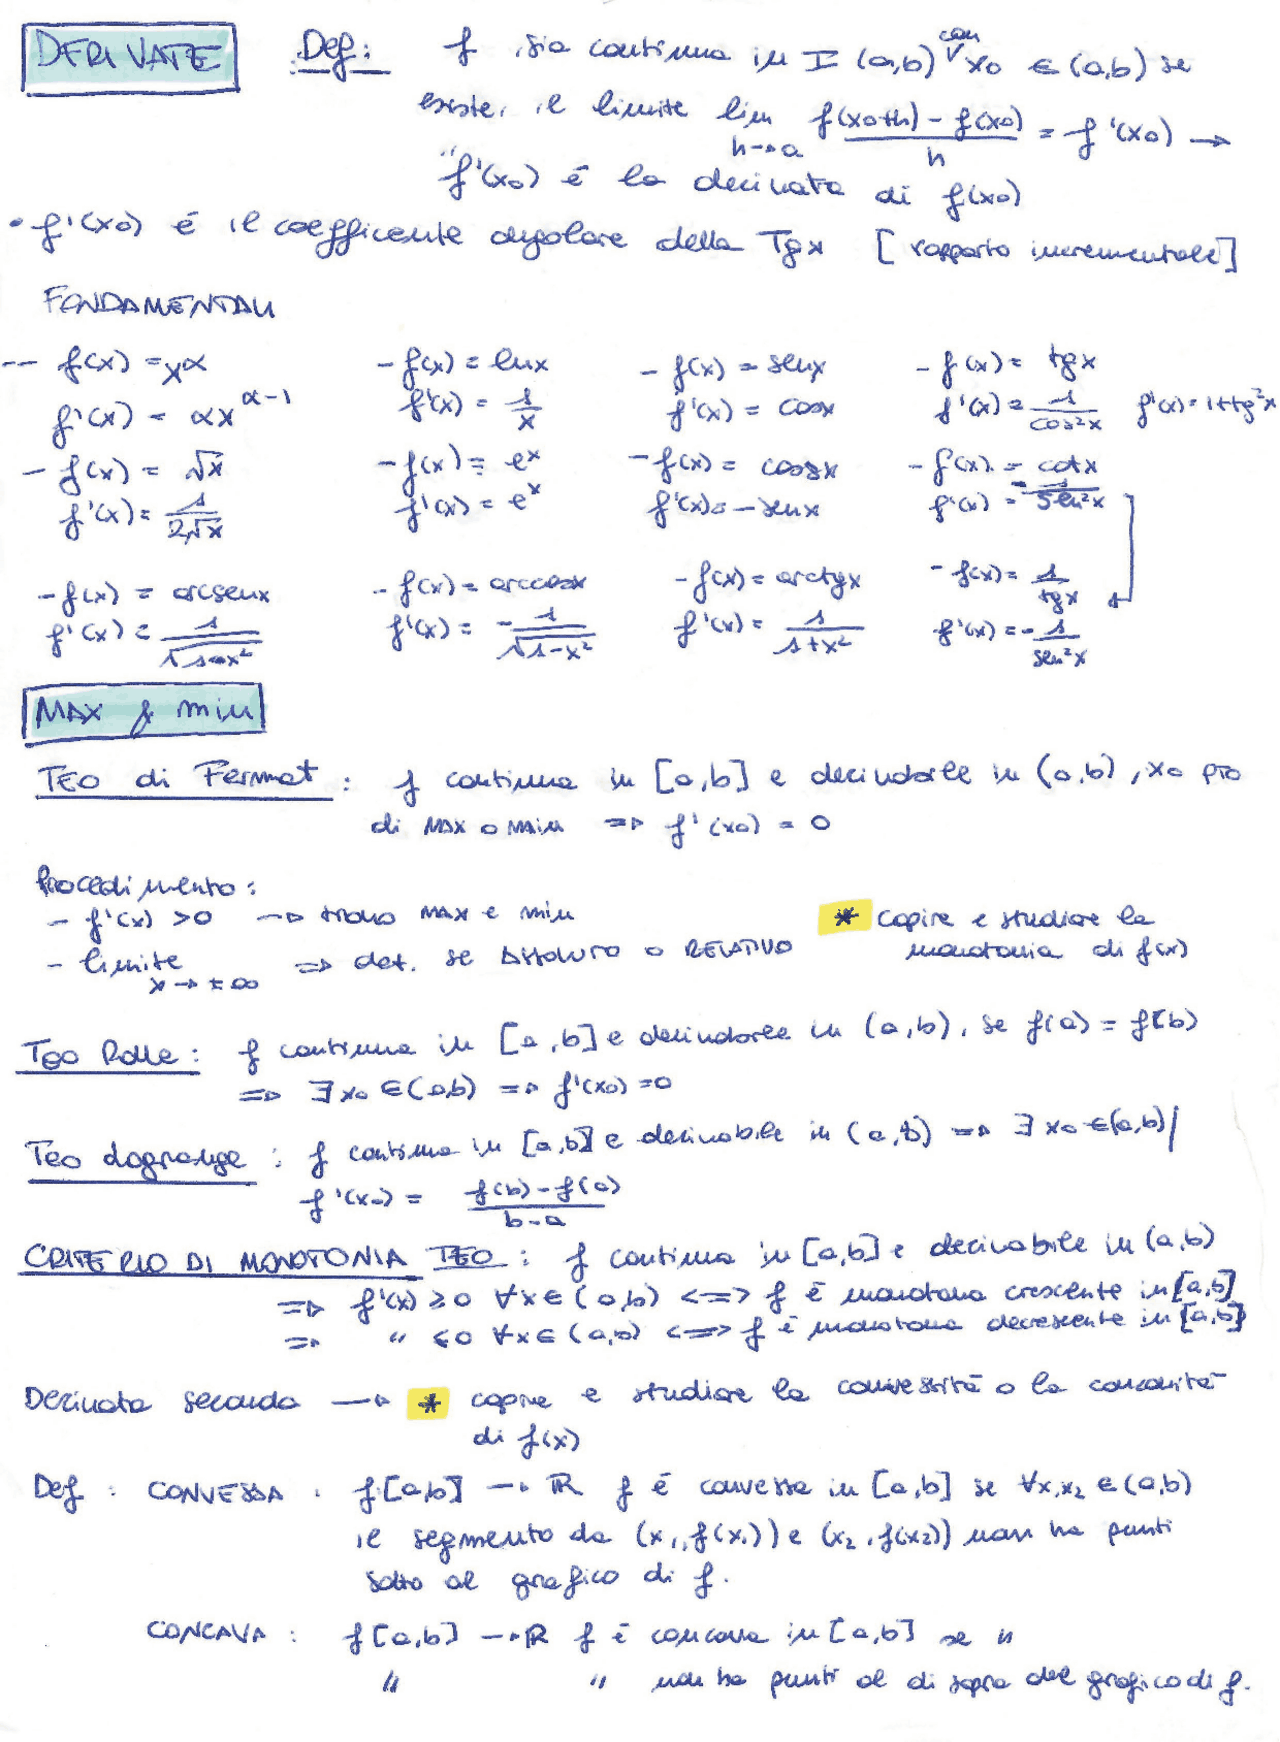 DERIVATE Def: f sia continua in I (a,b) con x₀ ∈ (a,b) se
esiste il limite lim h→0 f(x₀+h) - f(x₀) / h = f'(x₀) →
"f'(x₀) é la derivata di f(x₀)
• f'(x₀) é il coefficente angolare della Tgx [rapporto incrementale]
FONDAMENTALI
-- f(x) = x^α - f(x) = lnx - f(x) = senx - f(x) = tgx
f'(x) = αx^α-1 f'(x) = 1/x f'(x) = cosx f'(x) = 1/cos²x f'(x) = 1+tg²x
- f(x) = √x - f(x) = e^x - f(x) = cosx - f(x) = cotx
f'(x) = 1/2√x f'(x) = e^x f'(x) = -senx f'(x) = -1/sen²x
- f(x) = arcsenx - f(x) = arccosx - f(x) = arctgx - f(x) = 1/tgx
f'(x) = 1/√1-x² f'(x) = - 1/√1-x² f'(x) = 1/1+x² f'(x) = - 1/sen²x
MAX & min
TEO di Fermat : f continua in [a,b] e derivabile in (a,b), x₀ pto
di MAX o MIN => f'(x₀) = 0
Procedimento:
- f'(x) >0 → trovo MAX e min * capire e studiare la
- limite x→±∞ => det. se ASSOLUTO o RELATIVO monotonia di f(x)
Teo Rolle : f continua in [a,b] e derivabile in (a,b), se f(a) = f(b)
=> ∃ x₀ ∈ (a,b) => f'(x₀) = 0
Teo Lagrange : f continua in [a,b] e derivabile in (a,b) => ∃ x₀ ∈ (a,b) |
f'(x₀) = f(b) - f(a) / b-a
CRITERIO DI MONOTONIA TEO : f continua in [a,b] e derivabile in (a,b)
=> f'(x) ≥ 0 ∀x ∈ (a,b) <=> f é monotona crescente in [a,b]
=> " ≤0 ∀x ∈ (a,b) <=> f é monotona decrescente in [a,b]
Derivata seconda → * capire e studiare la convessità o la concavità
di f(x)
Def : CONVESSA : f[a,b] → ℝ f é convessa in [a,b] se ∀x₁x₂ ∈ (a,b)
il segmento da (x₁,f(x₁)) e (x₂,f(x₂)) non ha punti
sotto al grafico di f.
CONCAVA : f[a,b] → ℝ f é concava in [a,b] se "
" " non ha punti al di sopra del grafico di f.